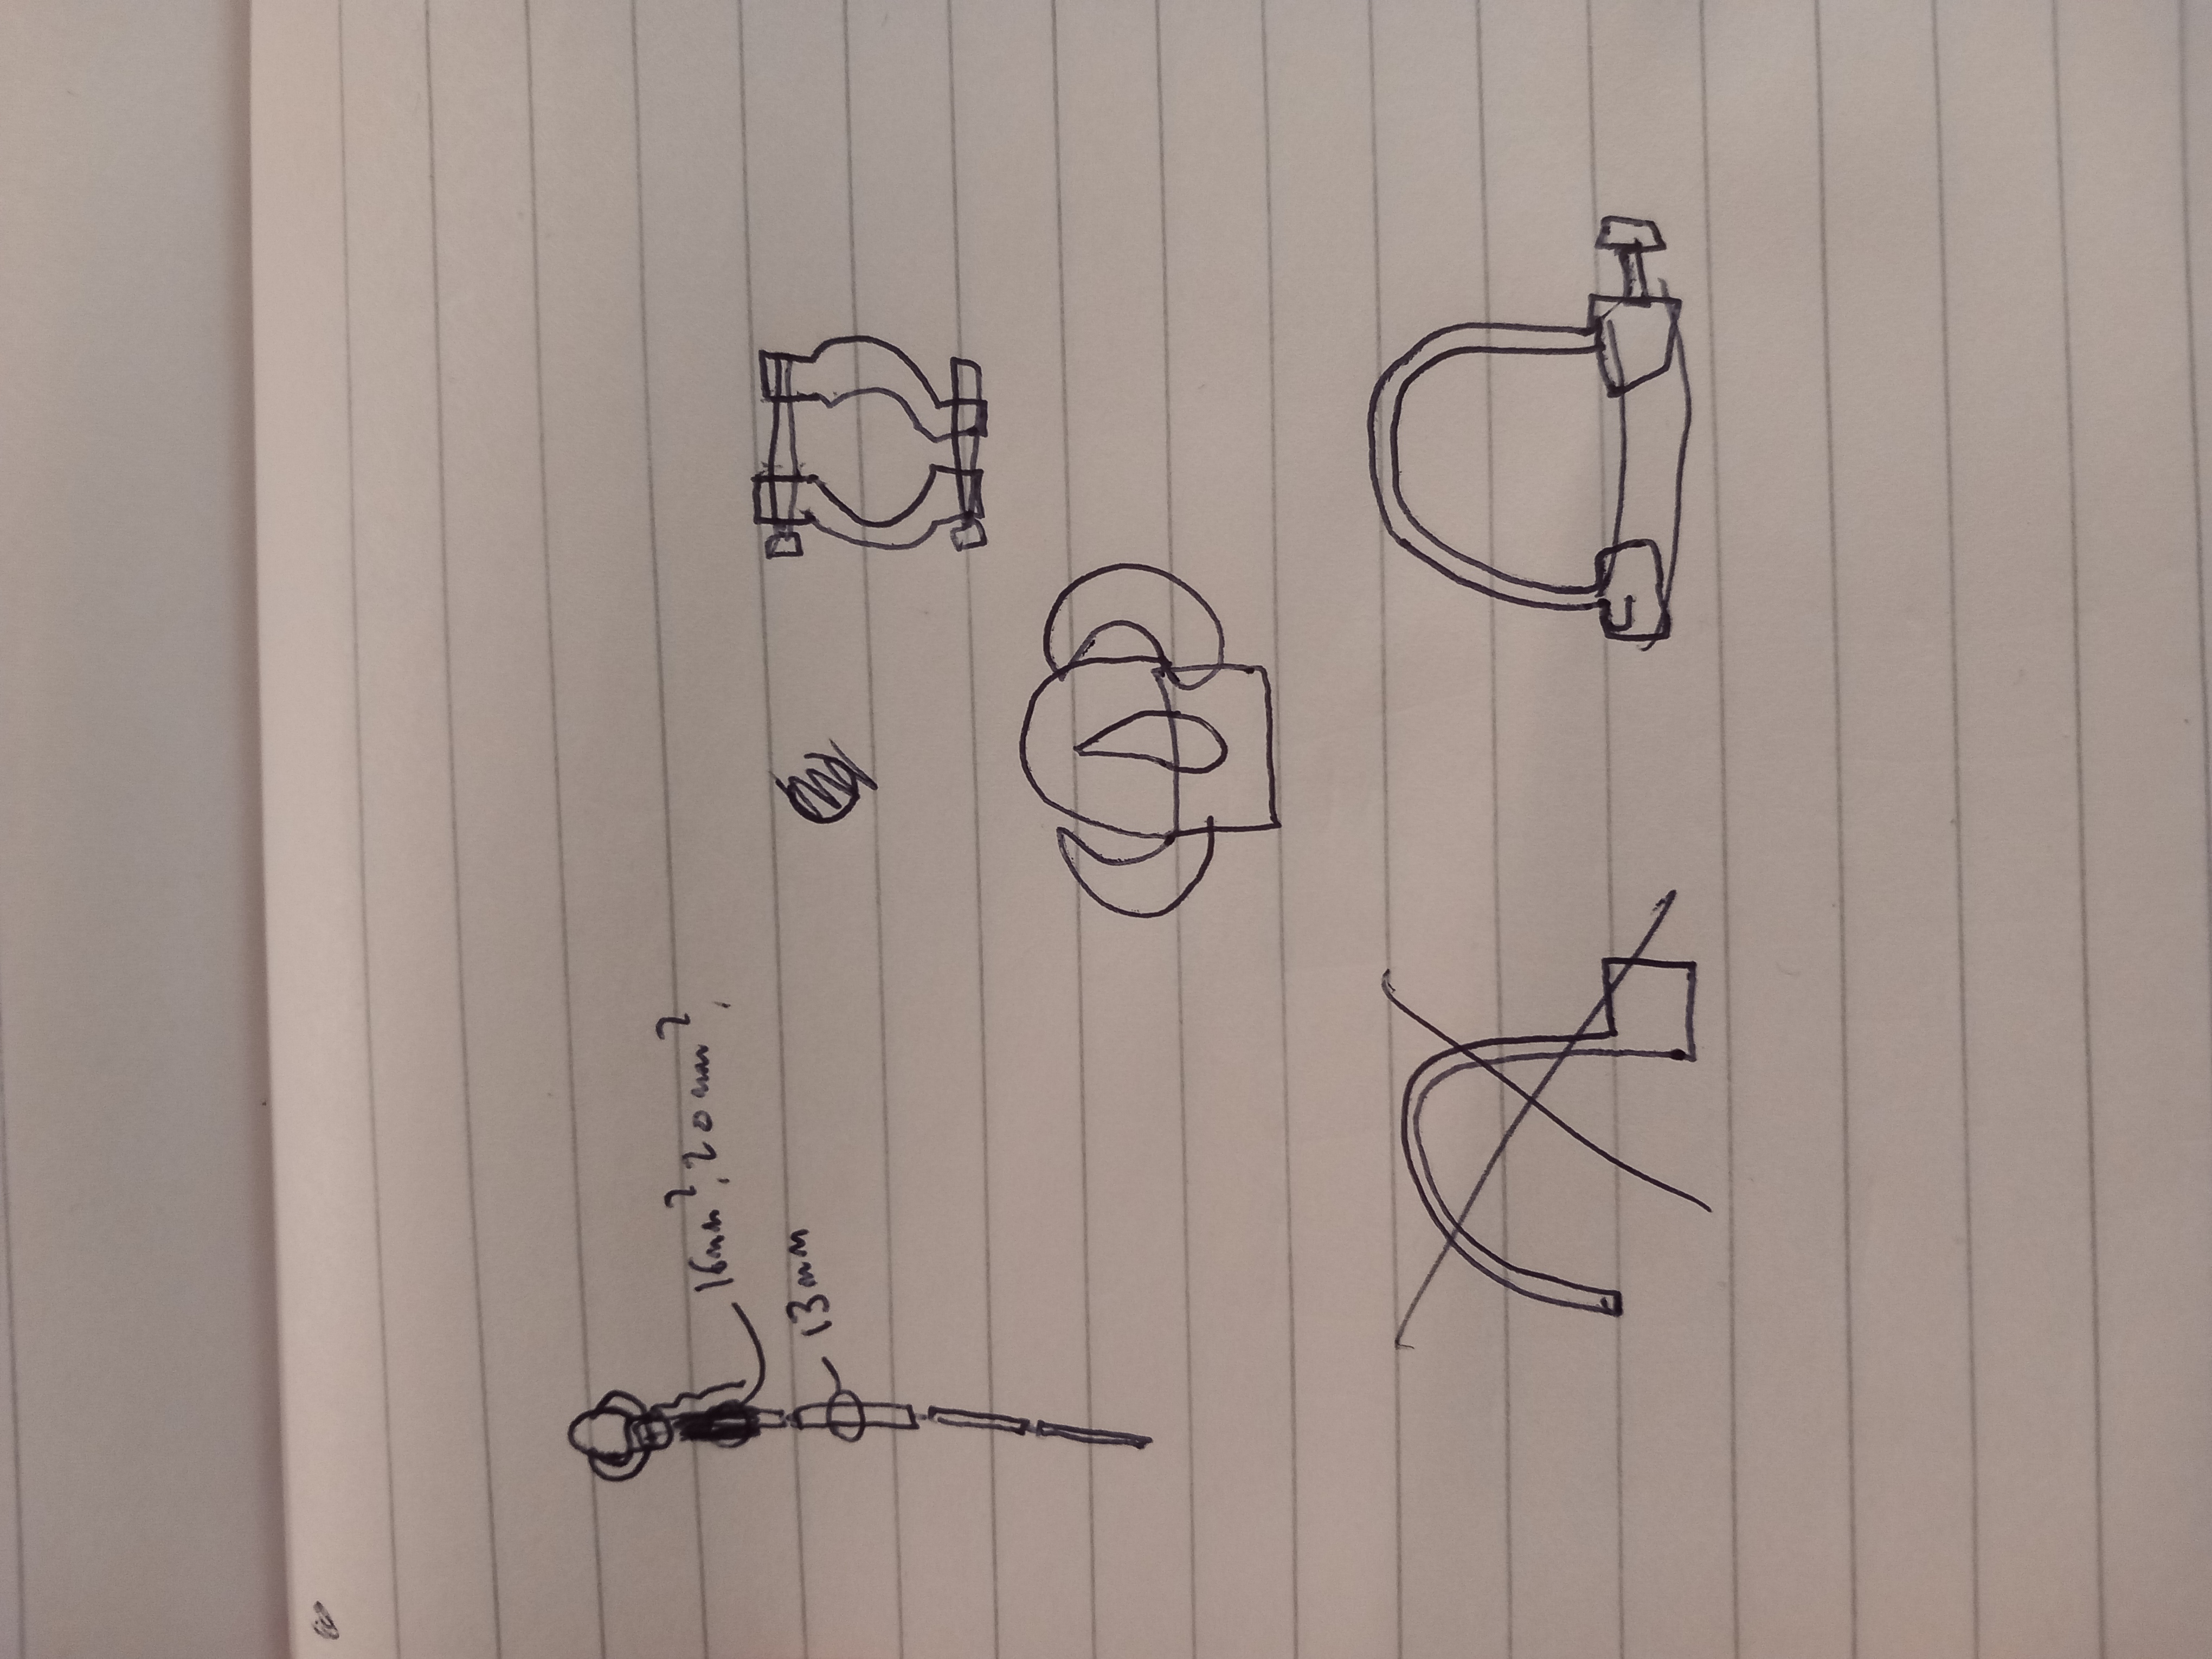 16mm?, 20mm?,
13mm